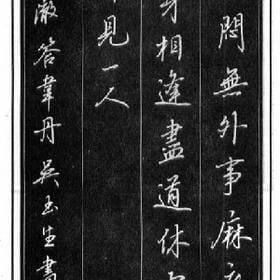 閒無外事麻
身相逢盡道休
見一人
澈答韋丹吳玉生書